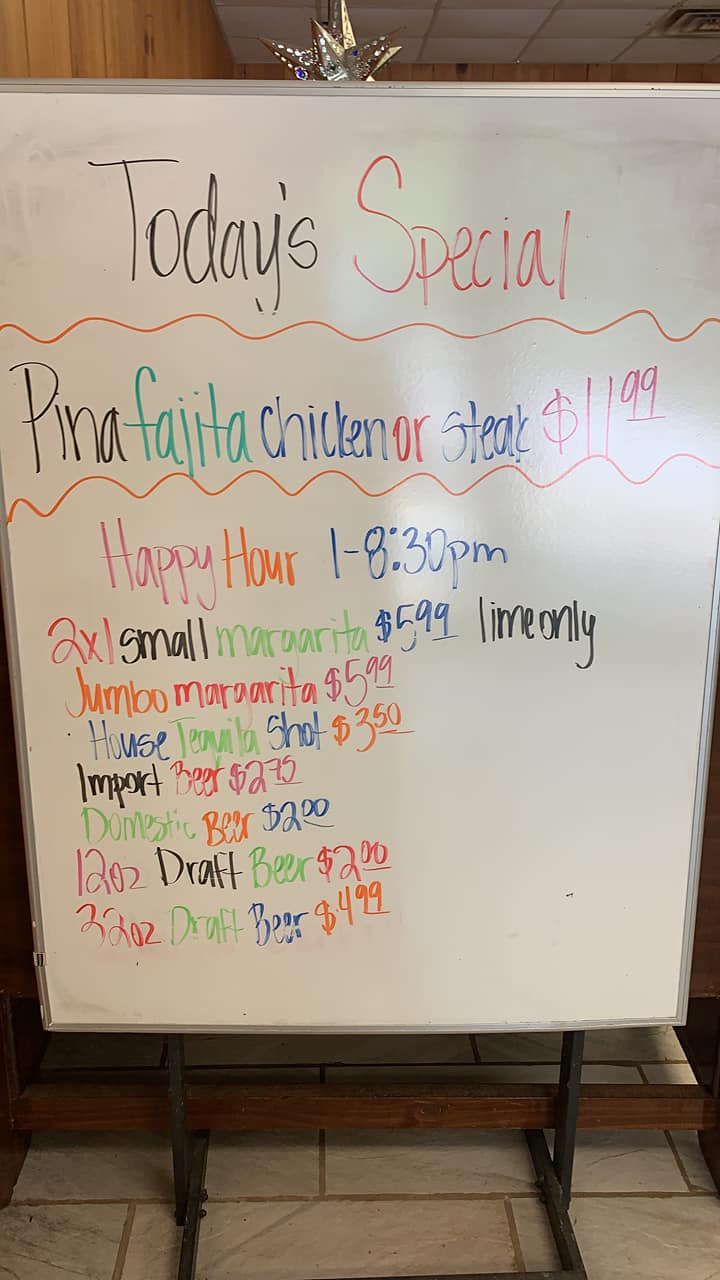 Today's Special
Pina fajita chicken or steak $11.99
Happy Hour 1-8:30pm
2x1 small margarita $5.99 lime only
Jumbo margarita $5.99
House Tequila Shot $3.50
Import Beer $2.75
Domestic Beer $2.00
12oz Draft Beer $2.00
32oz Draft Beer $4.99